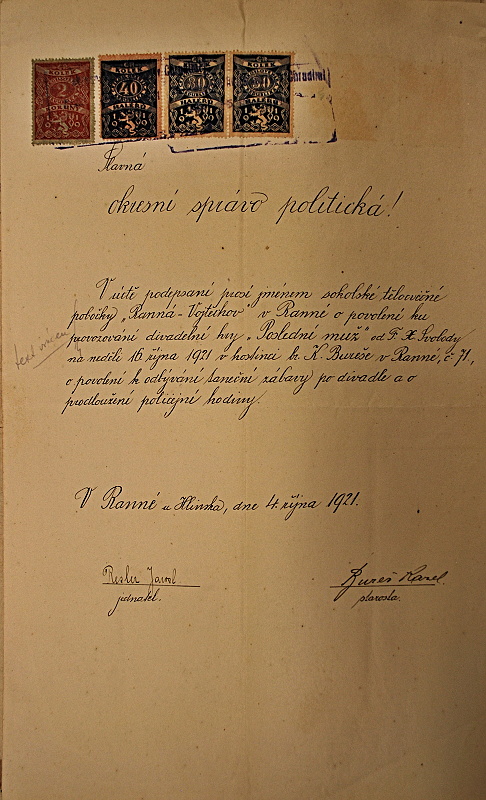 KOLEK KOLEK KOLEK KOLEK
2 40 30 30
KORUNY HALÉŘŮ HALÉŘŮ HALÉŘŮ
1919 1919 1919
Chrudimi
Slavná
okresní správo politická!
V úctě podepsaní prosí jménem sokolské tělocvičné
pobočky „Ranná-Vojtěchov" v Ranné o povolení ku
provozování divadelní hry „Poslední muž" od F. X. Svobody
na neděli 16. října 1921 v hostinci br. K. Bureše v Ranné, č. 71.,
o povolení k odbývání taneční zábavy po divadle a o
prodloužení policejní hodiny.
text vrácen
V Ranné u Hlinska, dne 4. října 1921.
Resler Bureš Karel
jednatel. starosta.